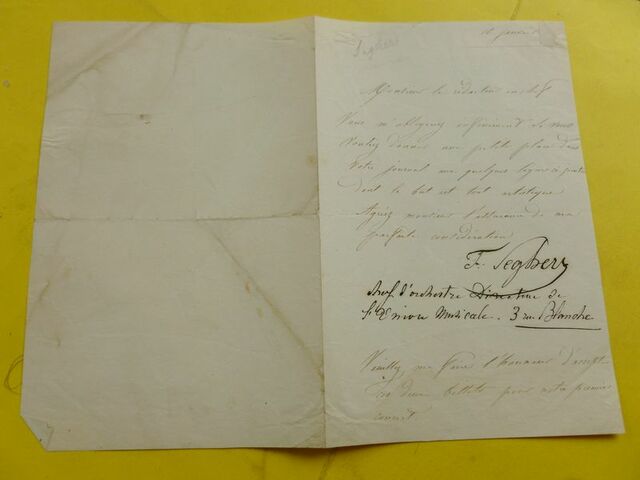 Seghers
16 janvier
Monsieur le rédacteur en chef
Vous m'obligerez infiniment de
voulez donner une petite place dans
votre journal aux quelques lignes
dont le but est tout artistique
Agréez monsieur l'assurance de ma
parfaite considération
F. Seghers
chef d'orchestre Directeur de
l'Union Musicale. 3 rue Blanche
Veuillez me faire l'honneur d'accep-
ter deux billets pour notre premier
concert